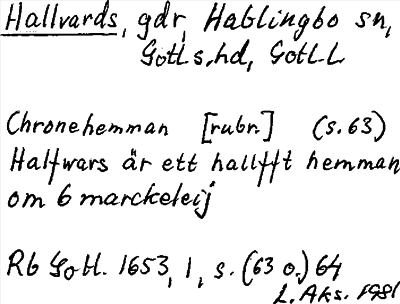 Hallvards, gdr, Hablingbo sn,
Gotl s. hd, Gotl. L
Chronehemman [rubr.] (s. 63)
Halfwars är ett hallfft hemman
om 6 marckeleij
Rb Gotl. 1653, 1, s. (63 o.) 64
L. Aks. 1981